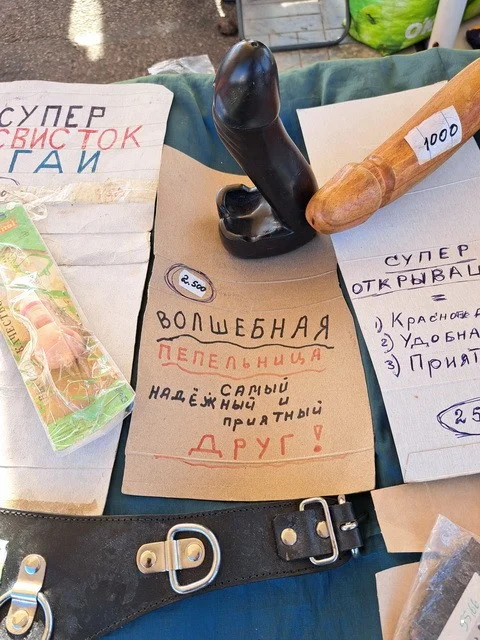 СУПЕР
СВИСТОК
ГАИ
2.500
ВОЛШЕБНАЯ
ПЕПЕЛЬНИЦА
САМЫЙ
НАДЁЖНЫЙ И
ПРИЯТНЫЙ
ДРУГ!
1000
СУПЕР
ОТКРЫВАЦ
=
1) Краснов
2) Удобна
3) Прият
25